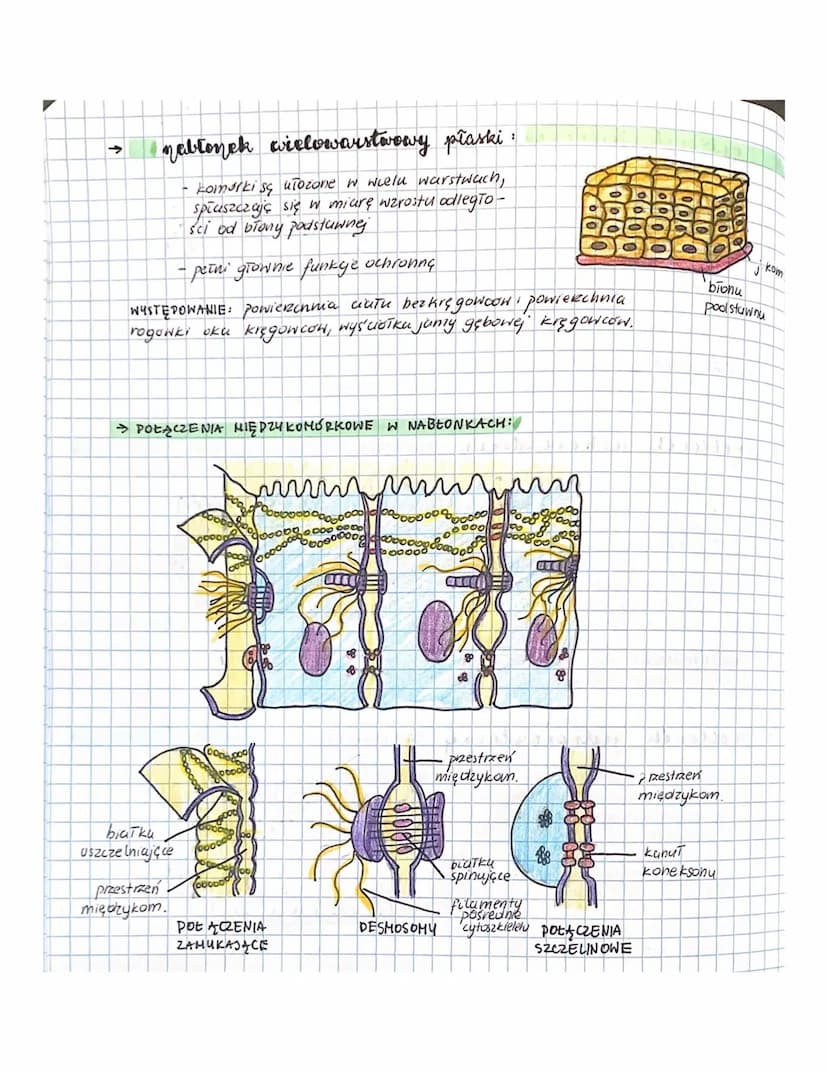 → nabłonek wielowarstwowy płaski:
- komórki są ułożone w wielu warstwach,
spłaszczają się w miarę wzrostu odległo-
ści od błony podstawnej
- pełni głownie funkcje ochronną
j kom
błona
podstawna
WYSTĘPOWANIE: powierzchnia ciała bezkręgowców i powierzchnia
rogówki oka kręgowców, wyściółka jamy gębowej kręgowców.
→ POŁĄCZENIA MIĘDZYKOMÓRKOWE W NABŁONKACH:
przestrzeń
międzykom.
przestrzeń
międzykom.
białka
uszczelniające
białka
spinające
kanał
koneksonu
przestrzeń
międzykom.
filamenty
pośrednie
cytoszkieletu
POŁĄCZENIA
ZAMYKAJĄCE
DESMOSOMY
POŁĄCZENIA
SZCZELINOWE